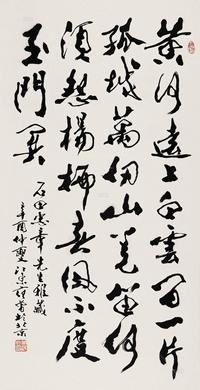 黄河遠上白雲間一片
孤城萬仞山羌笛何
須怨楊柳春風不度
玉門關
石田忠章先生雅藏
辛酉仲夏